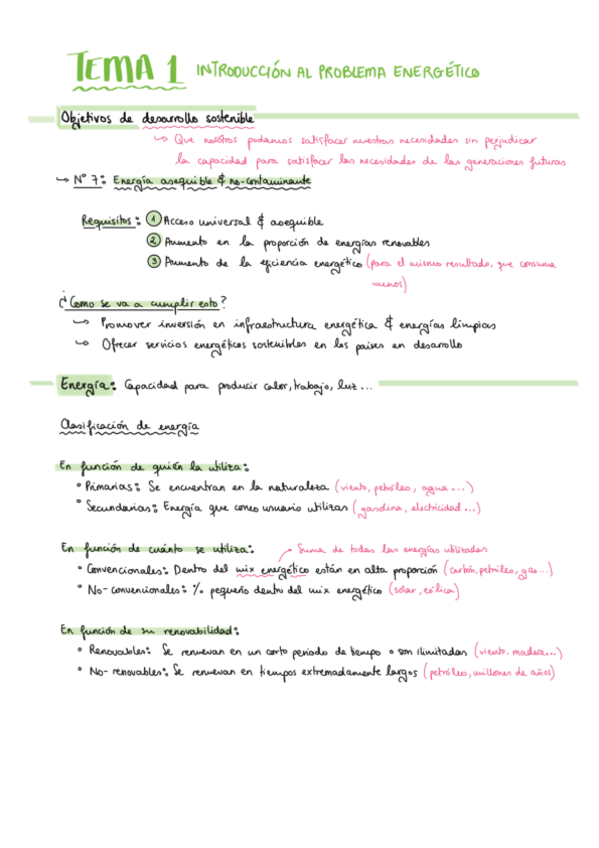 TEMA 1 INTRODUCCIÓN AL PROBLEMA ENERGÉTICO
Objetivos de desarrollo sostenible
↳ Que nosotros podamos satisfacer nuestras necesidades sin perjudicar
la capacidad para satisfacer las necesidades de las generaciones futuras
↳ Nº 7: Energía asequible & no-contaminante
Requisitos: ① Acceso universal & asequible
② Aumento en la proporción de energías renovables
③ Aumento de la eficiencia energético (para el mismo resultado, que consuma
menos)
¿Como se va a cumplir esto?
↳ Promover inversión en infraestructura energética & energías limpias
↳ Ofrecer servicios energéticos sostenibles en los países en desarrollo
Energía: Capacidad para producir calor, trabajo, luz...
Clasificación de energía
En función de quién la utiliza:
° Primarias: Se encuentran en la naturaleza (viento, petróleo, agua...)
° Secundarias: Energía que como usuario utilizas (gasolina, electricidad...)
En función de cuánto se utiliza: Suma de todas las energías utilizadas
° Convencionales: Dentro del mix energético están en alta proporción (carbón, petróleo, gas...)
° No-convencionales: % pequeño dentro del mix energético (solar, eólica)
En función de su renovabilidad:
° Renovables: Se renuevan en un corto periodo de tiempo o son ilimitadas (viento, madera...)
° No-renovables: Se renuevan en tiempos extremadamente largos (petróleo, millones de años)